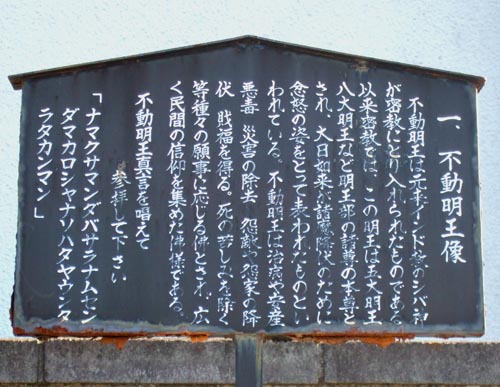 一、不動明王像
不動明王は元来インド教のシバ神
が密教にとり入れられたものである
以来密教では、この明王は五大明王
八大明王など明王部の諸尊の本尊と
され、大日如来が諸魔降伏のために
忿怒の姿をとって表われたものとい
われている。不動明王は治病や安産
悪毒 災害の除去 怨敵や怨家の降
伏 財福を得る。死の苦しみを除
等種々の願事に応じる佛とされ、広
く民間の信仰を集めた佛様である。
不動明王真言を唱えて
参拝して下さい
「ナマクサマンダバサラナムセン
ダマカロシャナソハタヤウンタ
ラタカンマン」